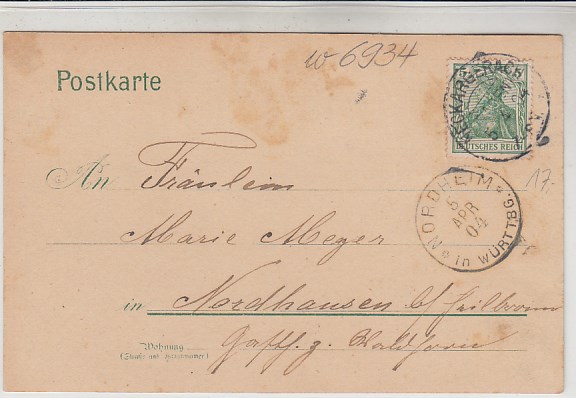 w 6934
Postkarte
NECKARGERACH
DEUTSCHES REICH
17.-
NORDHEIM
5
APR
04
in WÜRTTBG.
An Fräulein
Marie Meyer
in Nordhausen b/ Heilbronn
Wohnung
(Straße und Hausnummer)
Gasth. z. Waldhorn